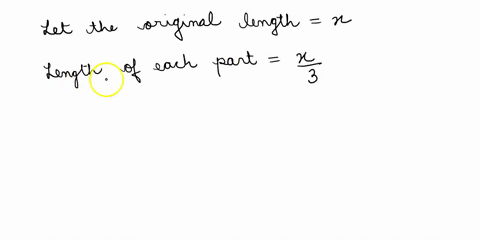 Let the original length = x
Length of each part = x/3